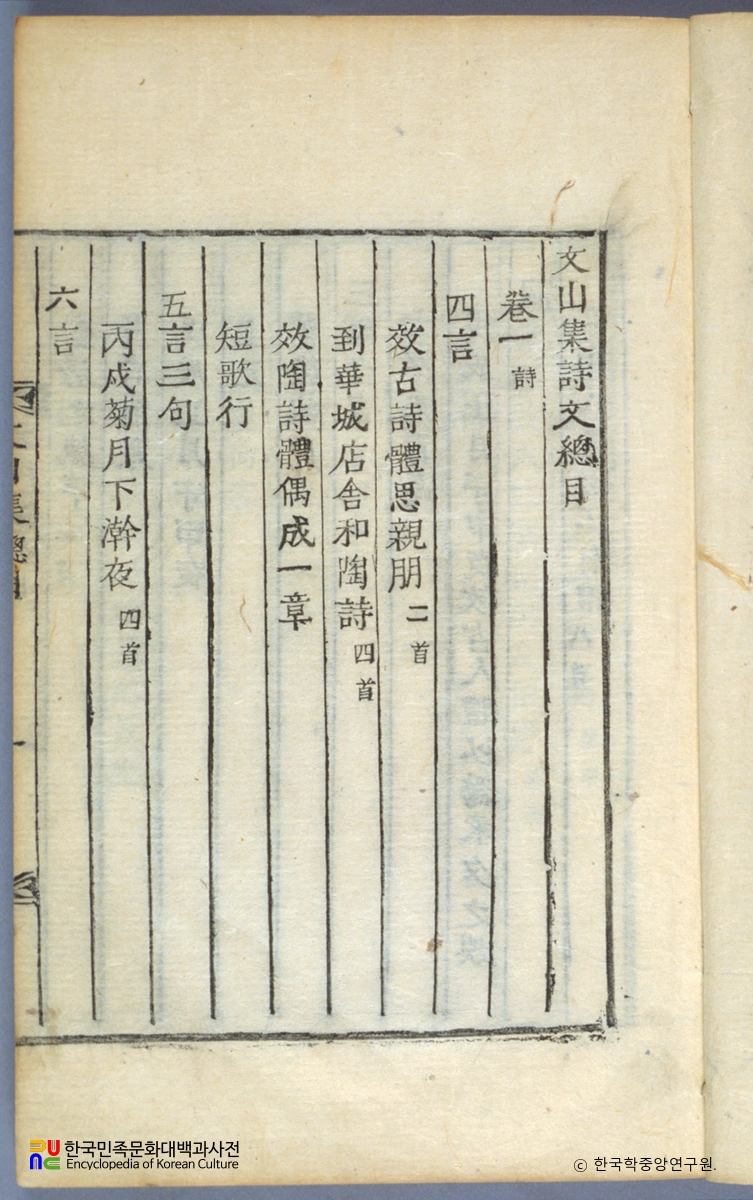 文山集詩文總目
卷一 詩
四言
效古詩體思親朋 二首
到華城店舍和陶詩 四首
效陶詩體偶成一章
短歌行
五言三句
丙戌菊月下澣夜 四首
六言
한국민족문화대백과사전
Encyclopedia of Korean Culture
© 한국학중앙연구원.